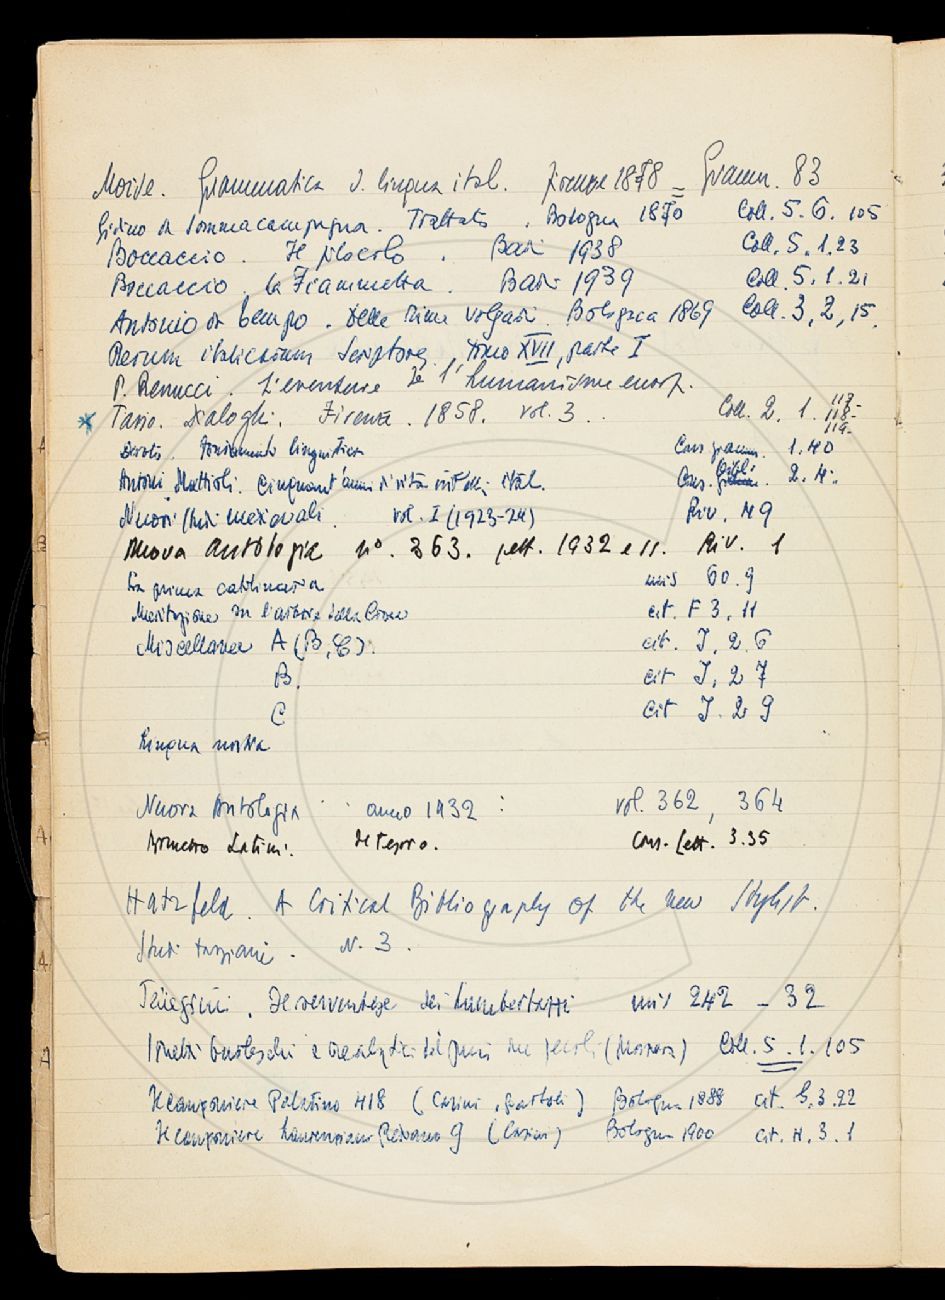 Moise. Grammatica d. lingua ital. Firenze 1878 = Gramm. 83
Gidino da Sommacampagna. Trattato. Bologna 1870 Coll. 5. 6. 105
Boccaccio. Il filocolo. Bari 1938 Coll. 5. 1. 23
Boccaccio. La Fiammetta. Bari 1939 Coll. 5. 1. 21
Antonio da Tempo. Delle Rime volgari. Bologna 1869 Coll. 3, 2, 15.
Rerum italicarum Scriptores, tomo XVII, parte I
P. Renucci. L'aventure de l'humanisme europ.
* Tasso. Dialoghi. Firenze. 1858. vol. 3. Coll. 2. 1. 117- 118- 119-
Devoto. Fondamenti linguistica Cons. gramm. 1. 40
Antoni Mattioli. Cinquant'anni di vita intell. ital. Cons. bibl. 2. 4.
Nuovi studi medievali. vol. I (1923-24) Riv. 49
Nuova Antologia nº. 363. sett. 1932 e 11. Riv. 1
La prima catilinaria mis 60. 9
Meditazione su l'arbore della Croce cit. F 3. 11
Miscellanea A (B, C). cit. I. 2. 6
B. cit I. 2 7
C cit I. 2 9
Lingua nostra
Nuova Antologia anno 1932 : vol. 362, 364
Brunetto Latini. Il Tesoro. Cons. lett. 3. 35
Hatzfeld. A Critical Bibliography of the new Stylist.
Studi tassiani. N. 3.
Il serventese dei Lambertazzi mis 242 - 32
Sonetti burleschi e realistici dei primi due secoli (Massera) Coll. 5. 1. 105
Il canzoniere Palatino 418 (Casini, Bartoli) Bologna 1888 cit. G. 3. 22
Il canzoniere Laurenziano Rediano 9 (Casini) Bologna 1900 cit. H. 3. 1